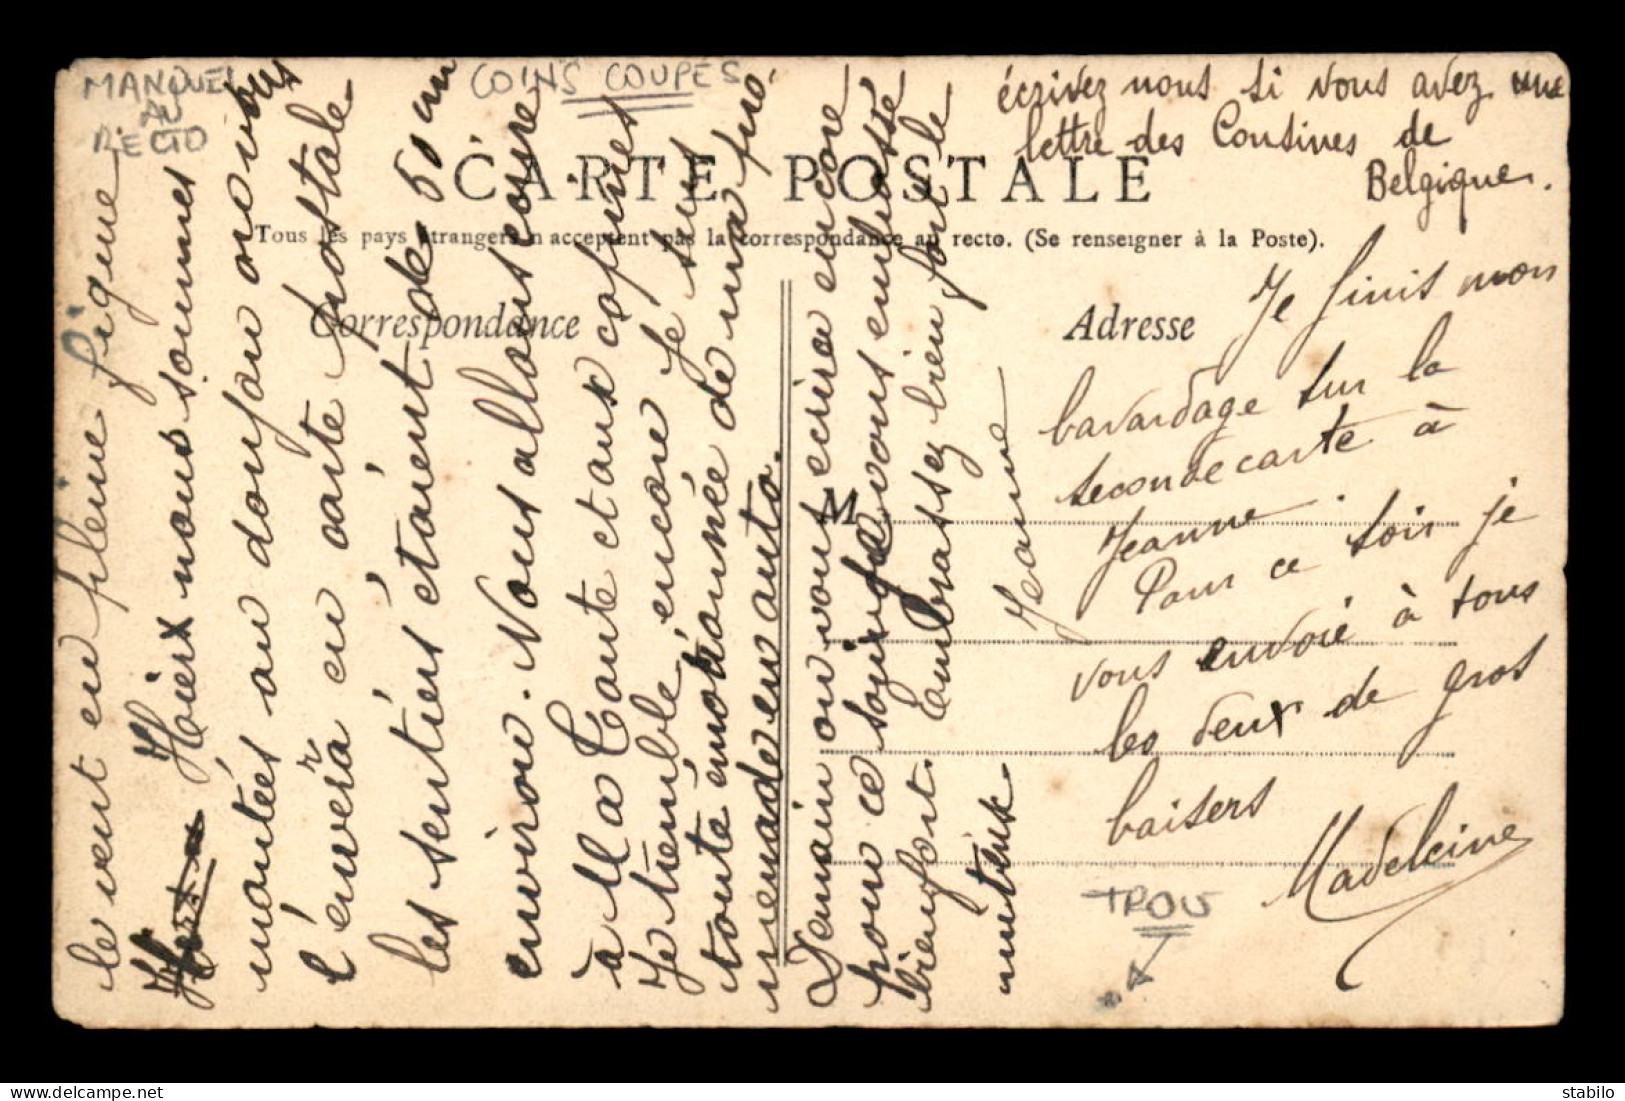 MANQUE
AU
RECTO
COINS COUPÉS
CARTE POSTALE
Tous les pays étrangers n'acceptent pas la correspondance au recto. (Se renseigner à la Poste).
Correspondance
Adresse
M
le vent en pleine figure
Hier nous sommes
montées au donjon on vous
l'enverra en carte postale
les sentiers étaient de 50 cm
environ. Nous allons écrire
à Ma Tante et aux copines
Je tremble encore je suis
toute émotionnée de ma pro-
menade en auto.
Demain on vous écrira encore
pour ce soir je vous embrasse
bien fort. Embrassez bien fort le
Jeanne
écrivez nous si vous avez une
lettre des Cousines de
Belgique.
Je finis mon
bavardage sur la
seconde carte à
Jeanne.
Pour ce soir je
vous envoie à tous
les deux de gros
baisers
Madeleine
TROU
stabilo